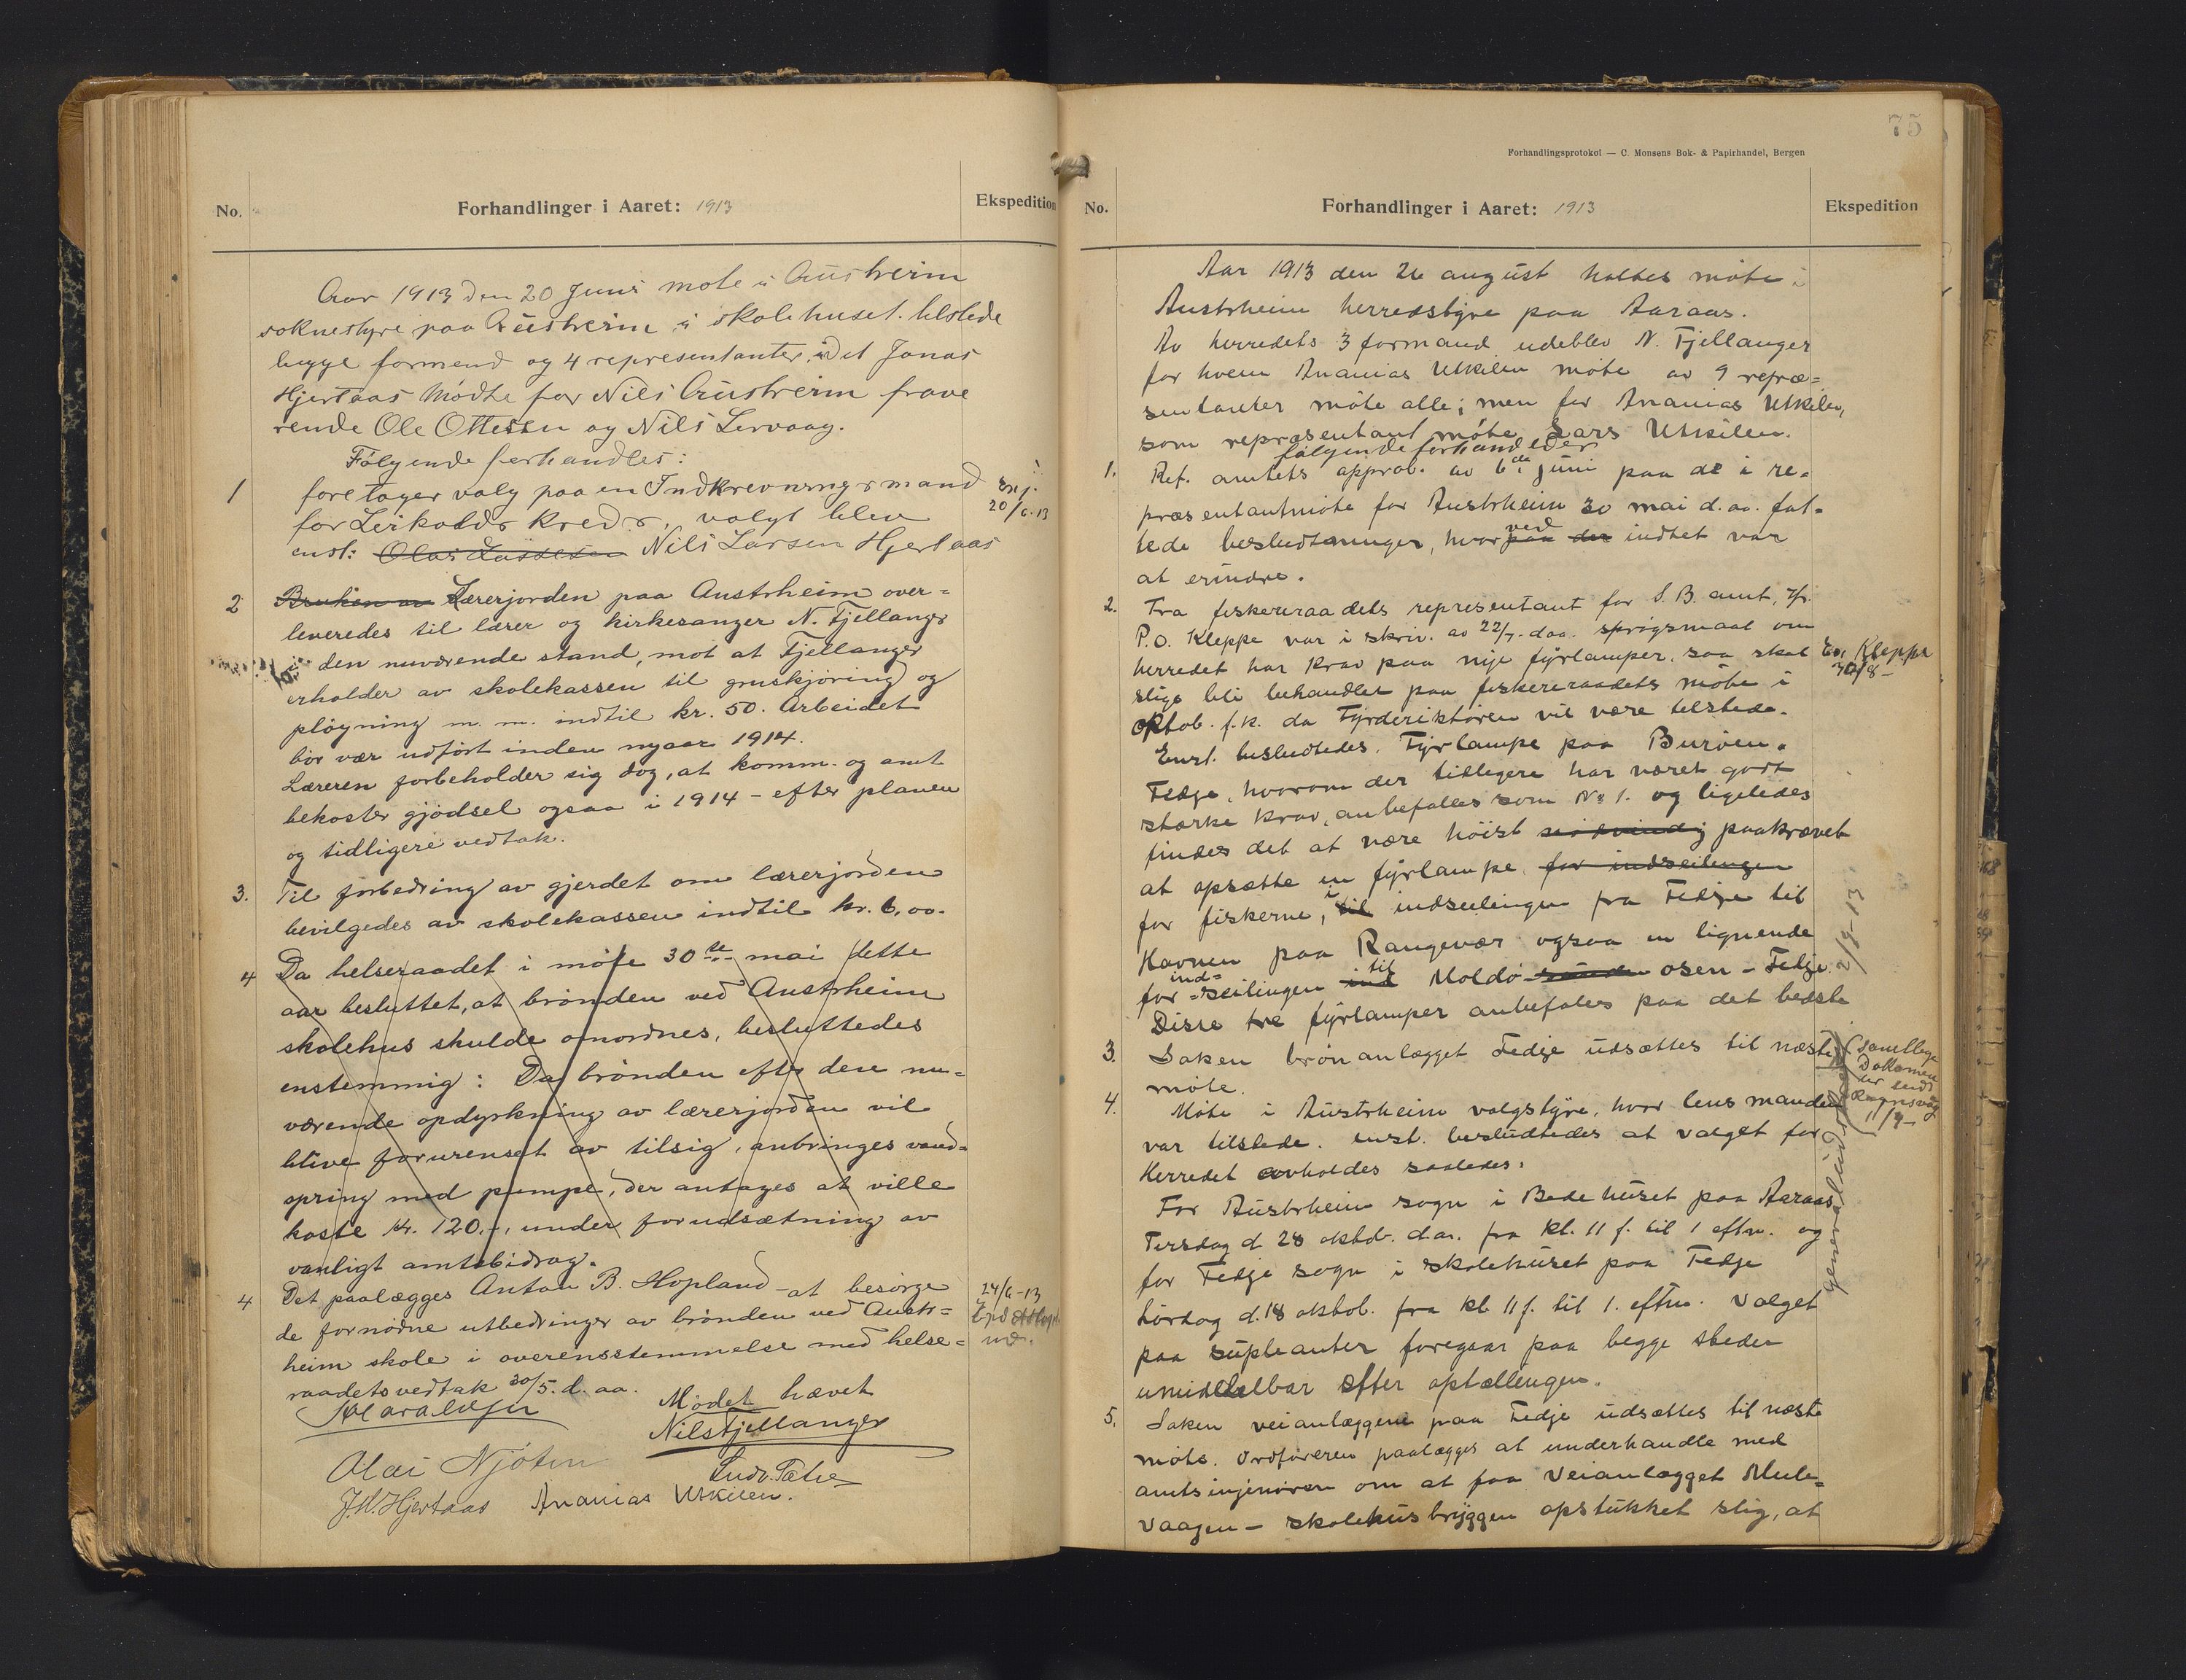 No.
Forhandlinger i Aaret: 1913
Ekspedition
Aar 1913 den 20 Juni mote i Austrheim
soknestyre paa Austrheim i skolehuset. tilstede
begge formend og 4 representanter, idet Jonas
Hjertaas Mødte for Nils Austrheim frave
rende Ole Ottesen og Nils Lervaag.
Følgende forhandles:
1 foretages valg paa en Indkrevningsmand
for Leirkolds Kreds, valgt blev
enst: Olai Lassesen Nils Larsen Hjertaas
20/6.13
2 Bruken av Lærerjorden paa Austrheim over=
leveredes til lærer og kirkesanger N. Fjellanger
i den nuværende stand, mot at Fjellanger
erholder av skolekassen til gruskjøring og
pløgning m. m. indtil kr. 50. Arbeidet
bør vær udført inden nyaar 1914.
Læreren forbeholder sig dog, at komm. og amt
bekoster gjødsel ogsaa i 1914 - efter planen
og tidligere vedtak.
3. Til forbedring av gjerdet om lærerjorden
bevilgedes av skolekassen indtil kr. 6,00.
4 Da helseraadet i møte 30te mai dette
aar besluttet, at brønden ved Austrheim
skolehus skulde omordnes, besluttedes
enstemmig: Da brønden efter den nu=
værende opdyrkning av lærerjorden vil
blive forurenset av tilsig, anbringes vand=
spring med pumpe, der antages at ville
koste kr. 120.-, under forudsætning av
vanligt amtsbidrag.
4 Det paalægges Anton B. Hopland at besørge
de fornødne utbedringer av brønden ved Austr=
heim skole i overensstemmelse med helse=
raadets vedtak 30/5. d. aa.
24/6-13
Mødet hævet
Nils Fjellanger
Olai Njøten
J.W. Hjertaas Ananias Utkilen.
75
Forhandlingsprotokol — C. Monsens Bok- & Papirhandel, Bergen
No.
Forhandlinger i Aaret: 1913
Ekspedition
Aar 1913 den 26 august holdtes møte i
Austrheim herredstyre paa Aaraas.
Av herredets 3 formænd udeblev N. Fjellanger
for hvem Ananias Utkilen møte av 9 repræ=
sentanter møte alle; men for Ananias Utkilen,
som repræsentant møte Lars Utkilen.
følgende forhandledes
1. Ref. amtets approb. av 6te juni paa de i re=
præsentantmøte for Austrheim 30 mai d. aa. fat=
tede besludtninger, hvorved paa der indtet var
at erindre.
2. Fra fiskeriraadets representant for S. B. amt, hr.
P.O. Kleppe var i skriv. av 22/7. d.aa. sprøgsmaal om
herredet har krav paa nye fyrlamper, saa skal
slige bli behandlet paa fiskeriraadets møte i
oktob. f.k. da Fyrderiktøren vil være tilstede.
Enst. besludtedes. Fyrlampe paa Burøen.
Fedje, hvorom der tidligere har været gjort
stærke krav, anbefalles som No 1. og ligeledes
findes det at være høist nødvendig paakrævet
at opsætte en fyrlampe for indseilingen
for fiskerne, i til indseilingen fra Fedje til
Havnen paa Rangevær ogsaa en lignende
for ind=seilingen ind til Moldø-sunden osen - Fedje.
Disse tre fyrlamper anbefales paa det bedste
Kleppe
30/8-
3. Saken brønanlægget Fedje udsættes til næste
møte.
4. Møte i Austrheim valgstyre, hvor lensmanden
var tilstede. enst. besludtedes at valget for
Herredet avholdes saaledes:
For Austrheim sogn i Bedehuset paa Aaraas
Tirsdag d. 28 oktob. d.a. fra kl. 11 f. til 1 eftm. og
for Fedje sogn i skolehuset paa Fedje
Lørdag d. 18 oktob. fra kl 11 f. til 1. eftm. Valget
paa supleanter foregaar paa begge steder
umiddelbar efter optællingen.
2/9-13
11/9-
5. Saken veianlæggene paa Fedje udsættes til næste
møte. Ordføreren paalægges at underhandle med
amtsingeniøren om at faa Veianlægget Mule=
vaagen - skolehusbryggen opstukket slig, at